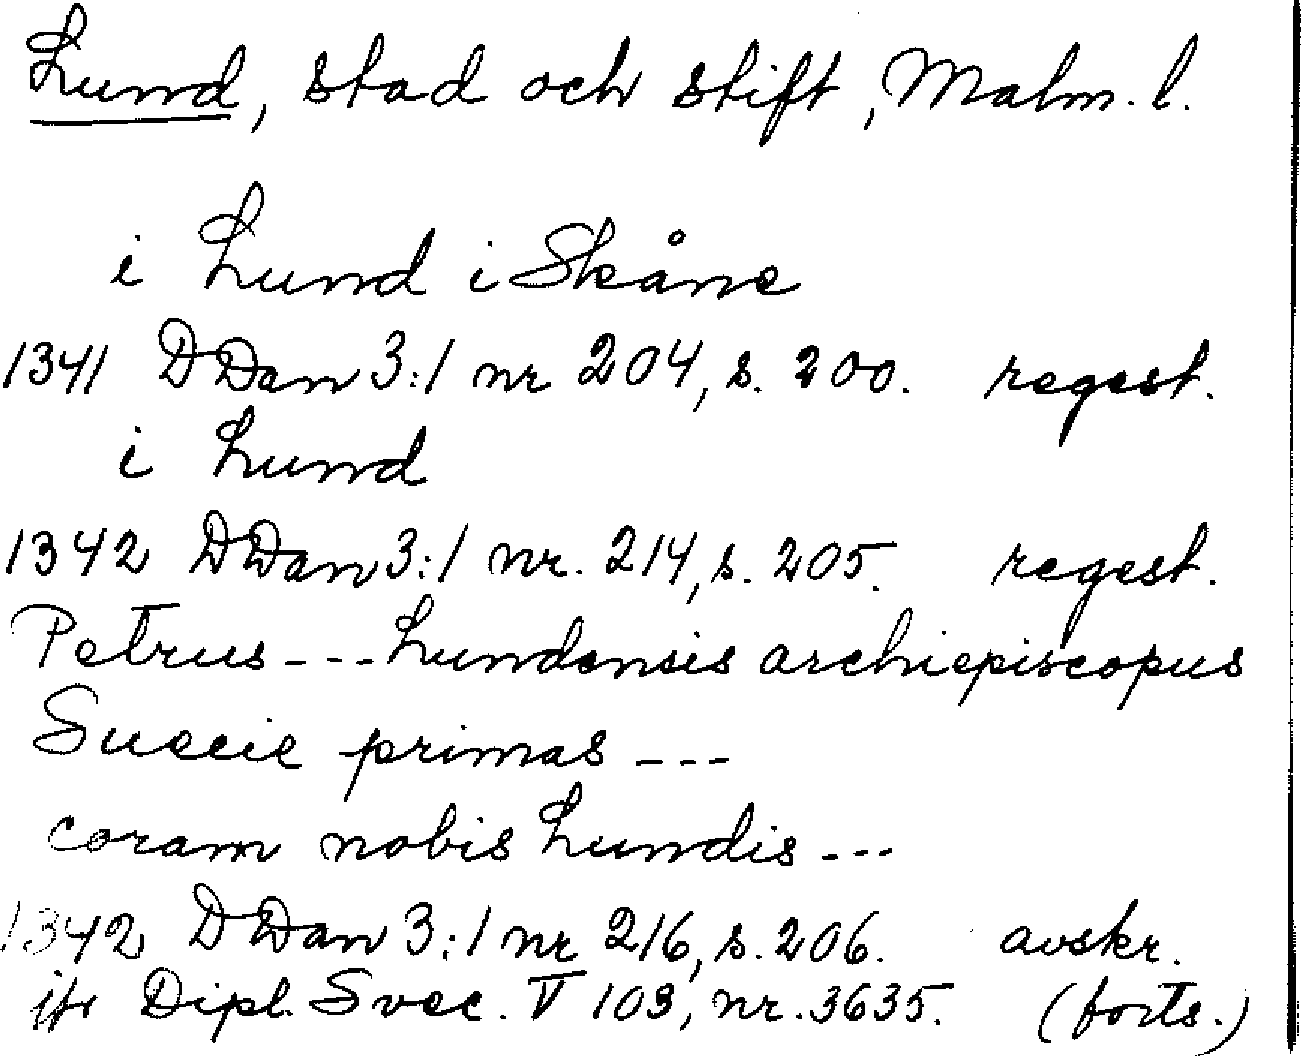 Lund, stad och stift, Malm. l.
i Lund i Skåne
1341 DDan 3:1 nr 204, s. 200. regest.
i Lund
1342 DDan 3:1 nr. 214, s. 205. regest.
Petrus --- Lundensis archiepiscopus
Suecie primas ---
coram nobis Lundis ---
1342 DDan 3:1 nr 216, s. 206. avskr.
jfr Dipl. Svec. V 103, nr. 3635. (forts.)